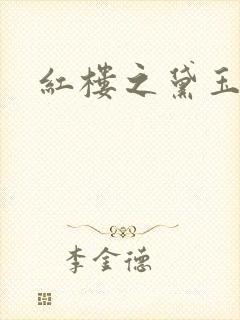 紅樓之黛玉
李金德